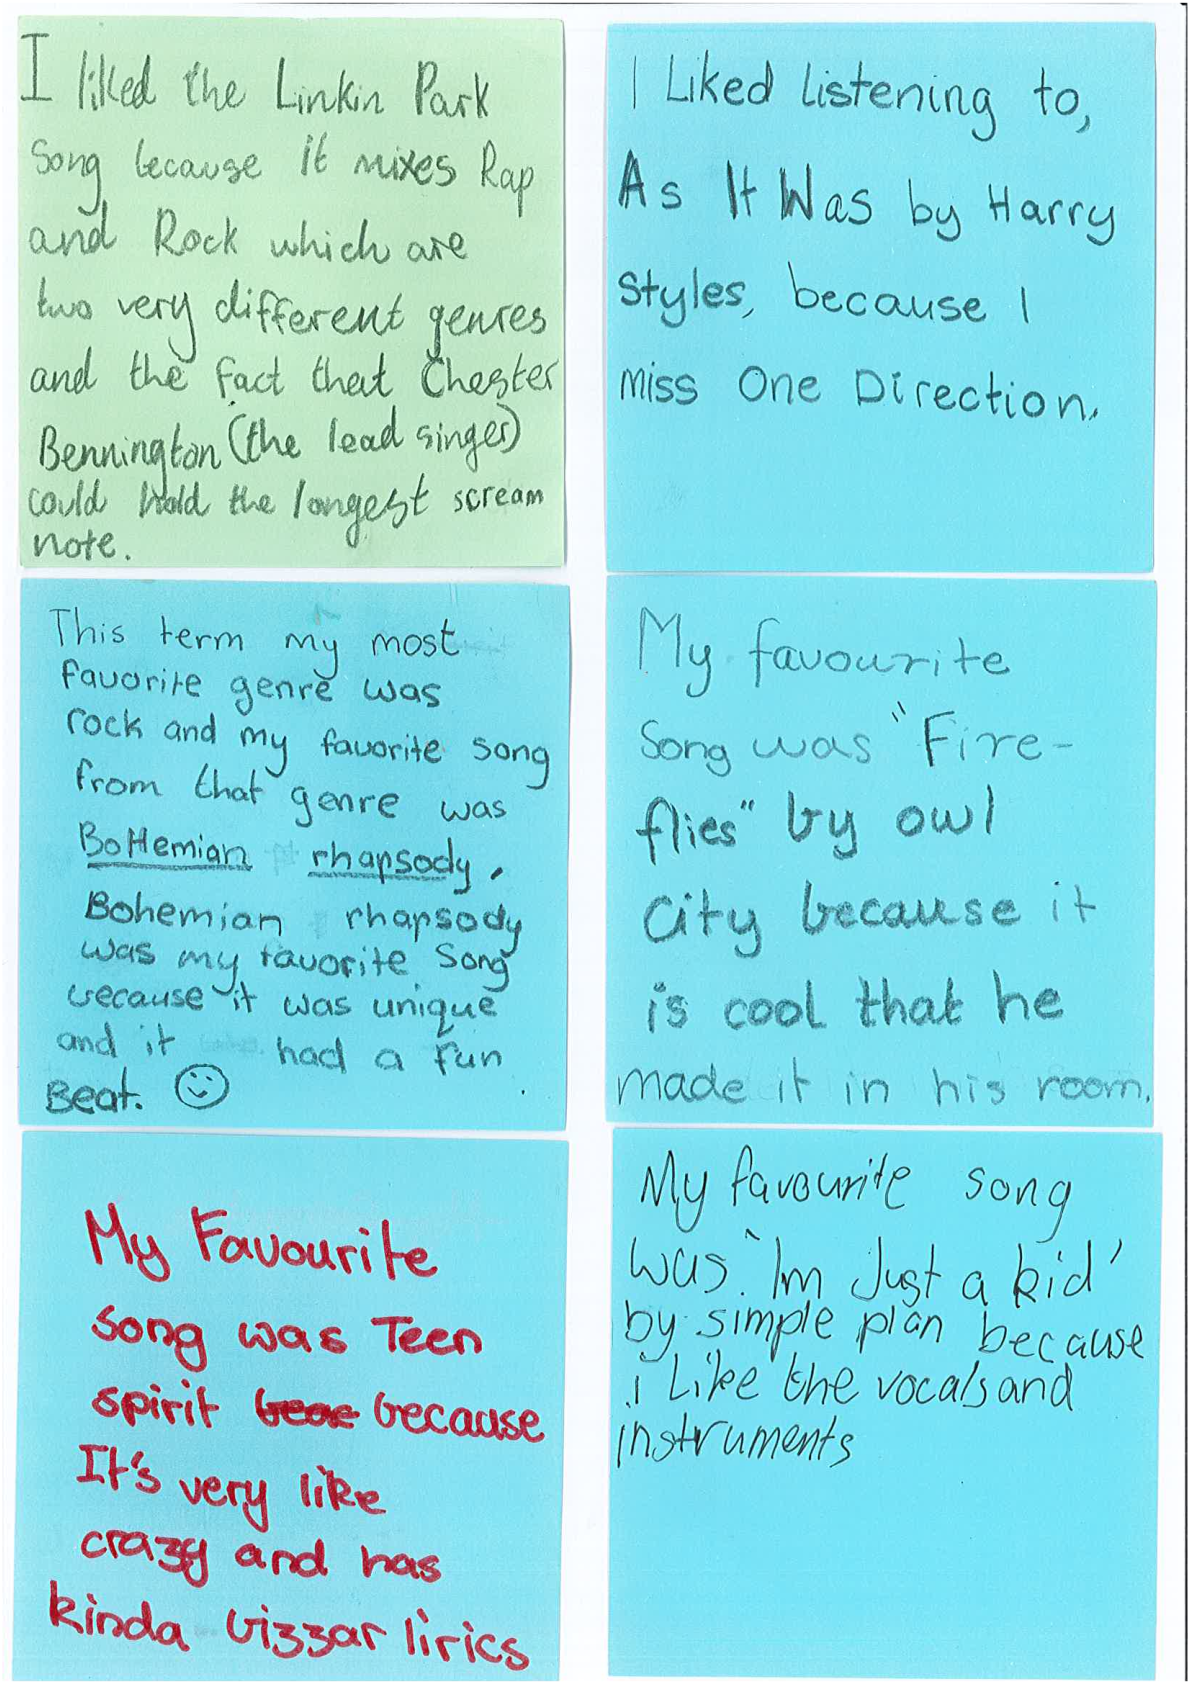 I liked the Linkin Park
song because it mixes Rap
and Rock which are
two very different genres
and the fact that Chester
Bennington (the lead singer)
could hold the longest scream
note.
I Liked listening to,
As It Was by Harry
Styles, because I
miss One Direction.
This term my most
favorite genre was
rock and my favorite song
from that genre was
BoHemian rhapsody.
Bohemian rhapsody
was my favorite song
because it was unique
and it had a fun
Beat.
My favourite
song was "Fire-
flies" by owl
city because it
is cool that he
made it in his room.
My Favourite
song was Teen
spirit because
It's very like
crazy and has
kinda bizzar lirics
My favourite song
was 'Im Just a kid'
by simple plan because
i Like the vocals and
instruments